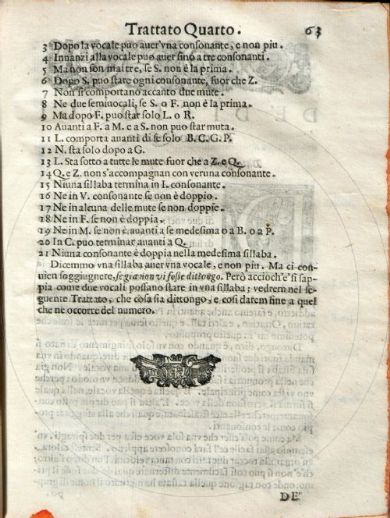 Trattato Quarto. 63
3 Dopo la vocale può auer'vna consonante, e non piu.
4 Innanzi alla vocale può auer sino a tre consonanti.
5 Ma non son mai tre, se S. non è la prima.
6 Dopo S. può stare ogni consonante, fuor che Z.
7 Non si comportano accanto due mute.
8 Ne due semiuocali, se S. o F. non è la prima.
9 Ma dopo F. può star solo L. o R.
10 Auanti a F. a M. e a S. non può star muta.
11 L. comporta auanti di se solo B. C. G. P.
12 N. sta solo dopo a G.
13 L. Sta sotto a tutte le mute fuor che a Z. e Q.
14 Q. e Z. non s'accompagnan con veruna consonante.
15 Niuna sillaba termina in I. consonante.
16 Ne in V. consonante se non è doppio.
17 Ne in alcuna delle mute se non doppie.
18 Ne in F. se non è doppia.
19 Ne in M. se non è auanti a se medesima o a B. o a P.
20 In C. può terminar auanti a Q.
21 Niuna consonante è doppia nella medesima sillaba.
Dicemmo vna sillaba auer vna vocale, e non piu. Ma ci conuien
soggiugnere, se già non vi fosse dittongo. Però acciochè si sappia
come due vocali possano stare in vna sillaba; vedrem nel seguente
Trattato, che cosa sia dittongo, e cosi datem fine a quel
che ne occorre del numero.
DE'